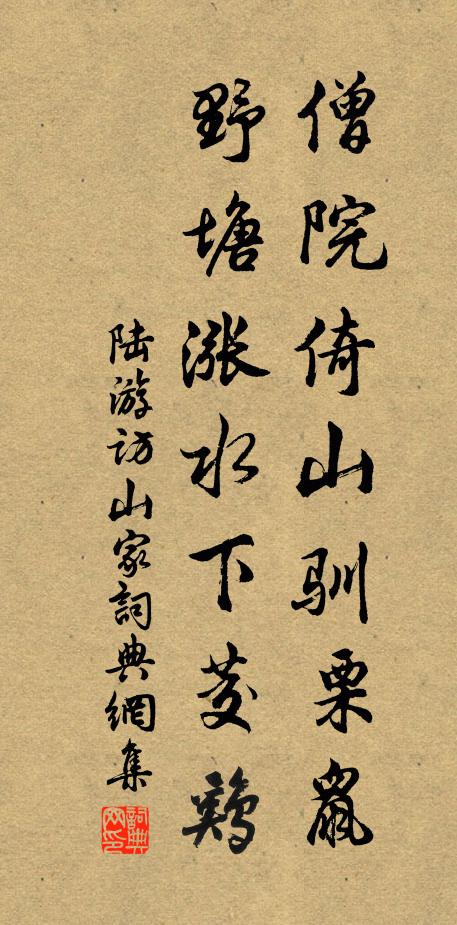 僧院倚山驯栗鼠
野塘漲水下茭鷄
陆游訪山家詞典網集
詞典网印